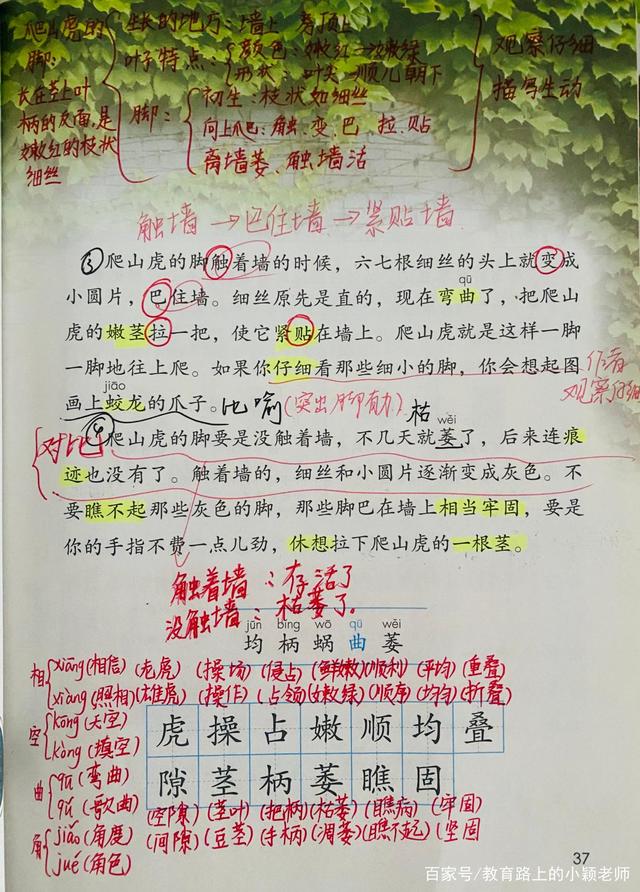 爬山虎的
脚:
长在茎上叶
柄的反面,是
嫩红的枝状
细丝
生长的地方:墙上 房顶上
叶子特点:
颜色:嫩红→嫩绿
形状:叶尖一顺儿朝下
脚:
初生:枝状如细丝
向上爬:触、变、巴、拉、贴
离墙萎、触墙活
观察仔细
描写生动
触墙→巴住墙→紧贴墙
③爬山虎的脚触着墙的时候,六七根细丝的头上就变成
小圆片,巴住墙。细丝原先是直的,现在弯曲了,把爬山
qū
虎的嫩茎拉一把,使它紧贴在墙上。爬山虎就是这样一脚
一脚地往上爬。如果你仔细看那些细小的脚,你会想起图
作者
观察仔细
jiāo
画上蛟龙的爪子。比喻(突出脚有力)枯
wěi
对比
④爬山虎的脚要是没触着墙,不几天就萎了,后来连痕
迹也没有了。触着墙的,细丝和小圆片逐渐变成灰色。不
要瞧不起那些灰色的脚,那些脚巴在墙上相当牢固,要是
你的手指不费一点儿劲,休想拉下爬山虎的一根茎。
触着墙:存活了
没触墙:枯萎了。
jūn bǐng wō qū wěi
均 柄 蜗 曲 萎
相 xiāng(相信) (老虎) (操场) (侵占) (鲜嫩) (顺利) (平均) (重叠)
xiàng(照相) (雄虎) (操作) (占领) (嫩绿) (顺序) (均匀) (折叠)
空 kōng(天空)
kòng(填空)
虎 操 占 嫩 顺 均 叠
隙 茎 柄 萎 瞧 固
曲 qū(弯曲)
qǔ(歌曲)
(空隙) (茎叶) (把柄) (枯萎) (瞧病) (牢固)
角 jiǎo(角度) (间隙) (豆茎) (手柄) (凋萎) (瞧不起) (坚固)
jué(角色)
37
百家号/教育路上的小颖老师